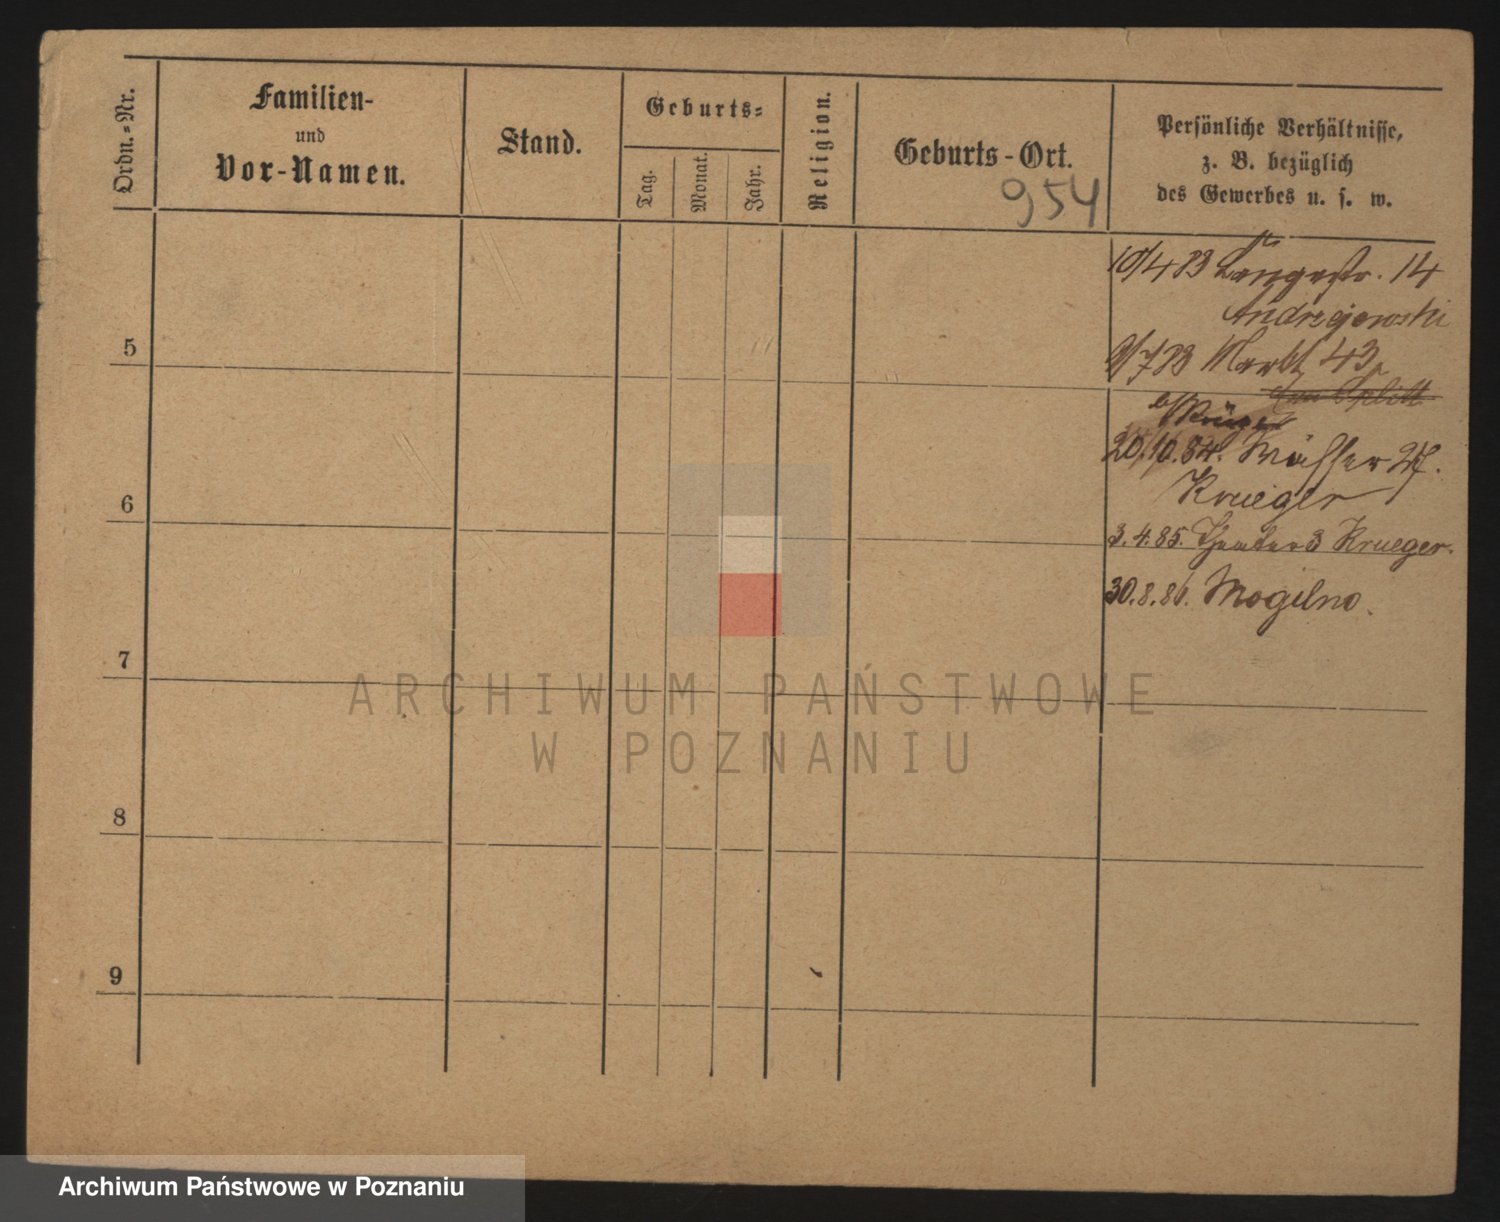 Ordn.=Nr.
Familien-
und
Vor-Namen.
Stand.
Geburts=
Tag.
Monat.
Jahr.
Religion.
Geburts-Ort.
954
Persönliche Verhältnisse,
z. B. bezüglich
des Gewerbes u. s. w.
10/4 83 Langestr. 14
Andrzejewski
7 83 Markt 43
Krüger
20.10.84. Wasser 27.
Krueger
3.4.85. Theater 3 Krueger.
30.8.86. Mogilno.
5
6
7
8
9
ARCHIWUM PAŃSTWOWE
W POZNANIU
Archiwum Państwowe w Poznaniu